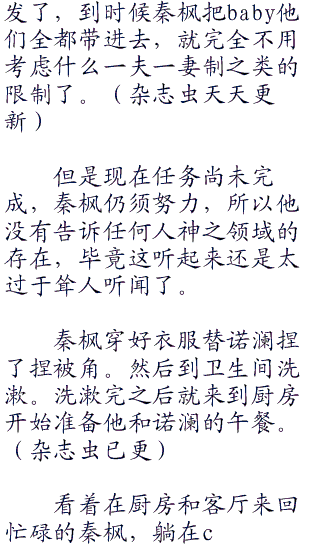 发了，到时候秦枫把baby他
们全都带进去，就完全不用
考虑什么一夫一妻制之类的
限制了。（杂志虫天天更
新）
但是现在任务尚未完
成，秦枫仍须努力，所以他
没有告诉任何人神之领域的
存在，毕竟这听起来还是太
过于耸人听闻了。
秦枫穿好衣服替诺澜捏
了捏被角。然后到卫生间洗
漱。洗漱完之后就来到厨房
开始准备他和诺澜的午餐。
（杂志虫已更）
看着在厨房和客厅来回
忙碌的秦枫，躺在c